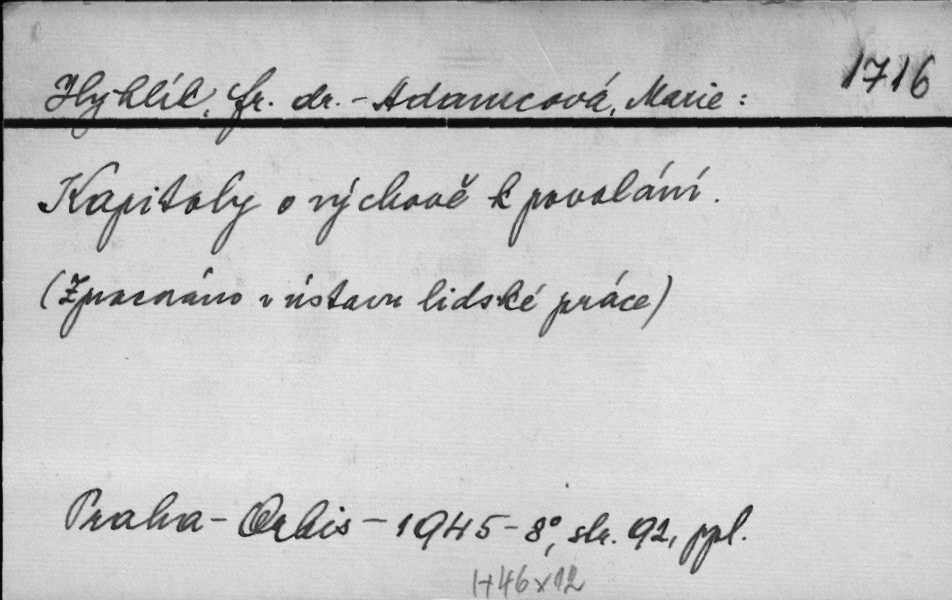 1716
Hyhlík, fr. dr. - Adamcová, Marie:
Kapitoly o výchově k povolání.
(Zpracováno v ústavu lidské práce)
Praha - Orbis - 1945 - 8°, str. 92, ppl.
1+46x12